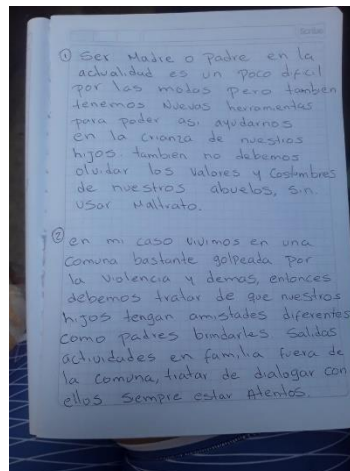 ① Ser Madre o padre en la
actualidad es un poco dificil
por las modas pero tambien
tenemos Nuevas herramientas
para poder asi ayudarnos
en la crianza de nuestros
hijos tambien no debemos
olvidar los valores y Costumbres
de nuestros abuelos, sin.
usar Maltrato.
② en mi caso vivimos en una
Comuna bastante golpeada por
la violencia y demas, entonces
debemos tratar de que nuestros
hijos tengan amistades diferentes
como padres brindarles Salidas
actividades en familia fuera de
la comuna, tratar de dialogar con
ellos Sempre estar Atentos.